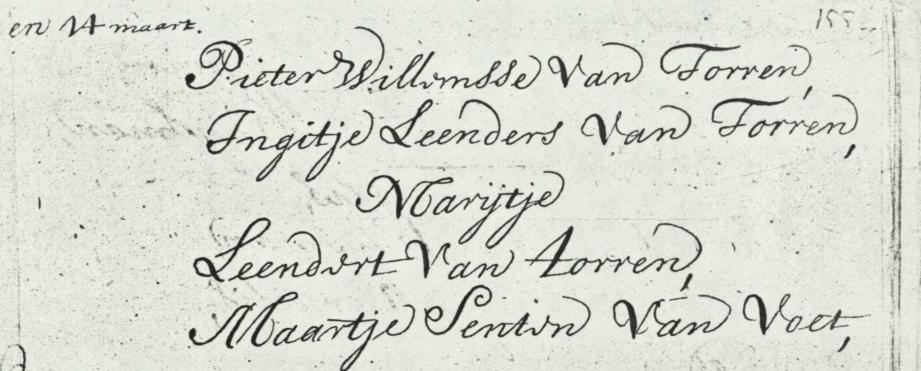 en 14 maart.
155
Pieter Willemsse Van Torren,
Ingitje Leenders Van Torren,
Marijtje
Leendert Van torren,
Maartje Senten Van Voet,